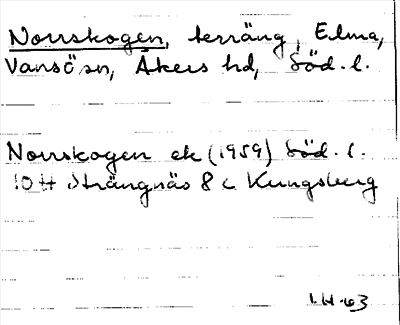 Norrskogen, terräng, Elma,
Vansö sn, Åkers hd, Söd. l.
Norrskogen ek (1959) Söd. l.
10 H Strängnäs 8 c Kungsberg
I.H-63